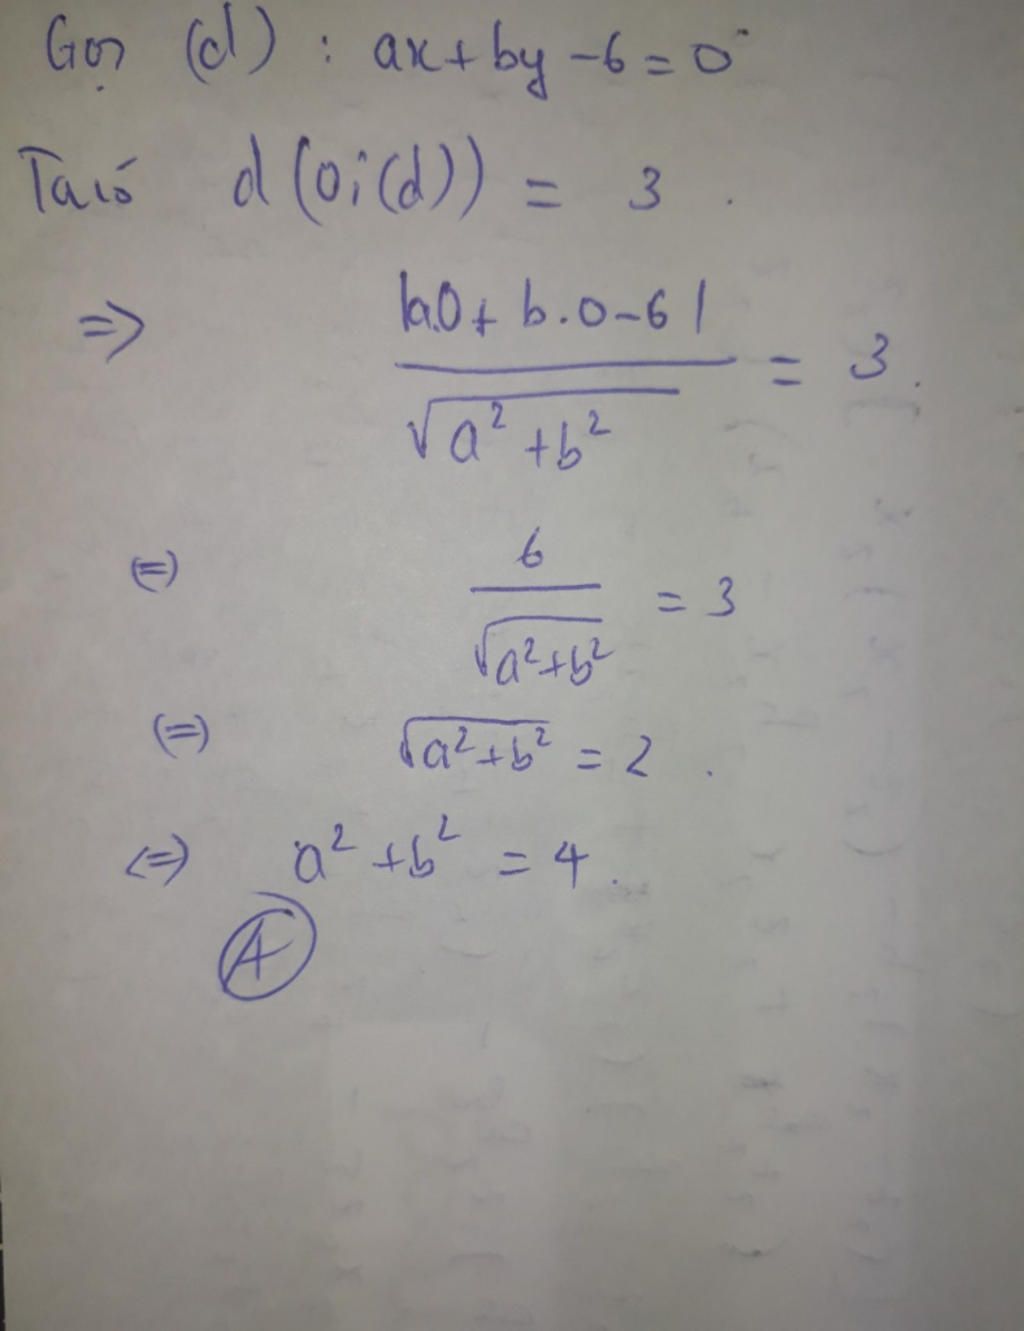 Gọi (d) : ax + by - 6 = 0
Ta có d(O;(d)) = 3.
=> |a.0 + b.0 - 6| / √(a² + b²) = 3.
(=) 6 / √(a² + b²) = 3
(=) √(a² + b²) = 2.
<=> a² + b² = 4.
A